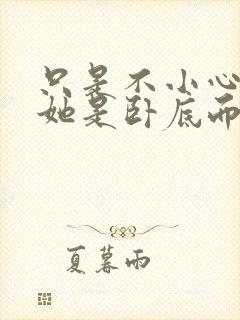 只是不小心
她是卧底而
夏暮雨